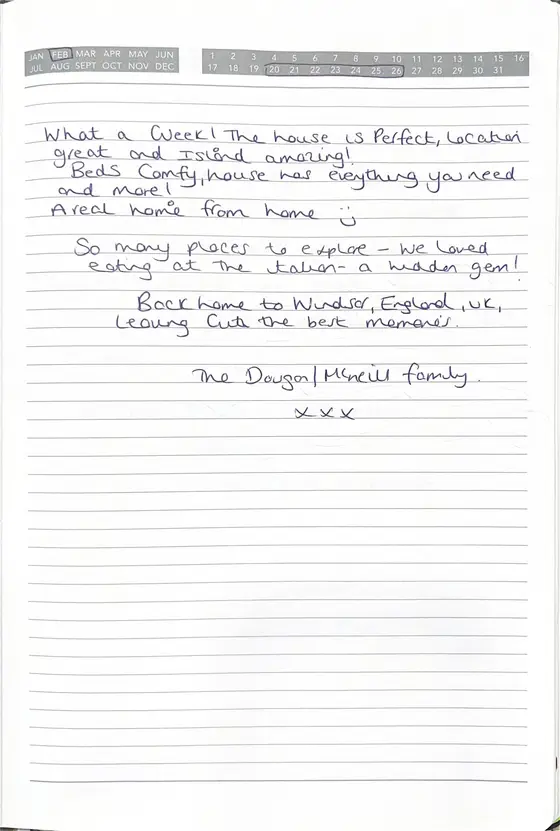 JAN FEB MAR APR MAY JUN
JUL AUG SEPT OCT NOV DEC
1 2 3 4 5 6 7 8 9 10 11 12 13 14 15 16
17 18 19 20 21 22 23 24 25 26 27 28 29 30 31
What a week! The house is Perfect, location
great and Island amazing!
Beds Comfy, house has eveything you need
and more!
A real home from home :)
So many places to explore - we loved
eating at the Italian - a hidden gem!
Back home to Windsor, England, UK,
leaving with the best memories.
The Dougan/McNeill family.
x x x